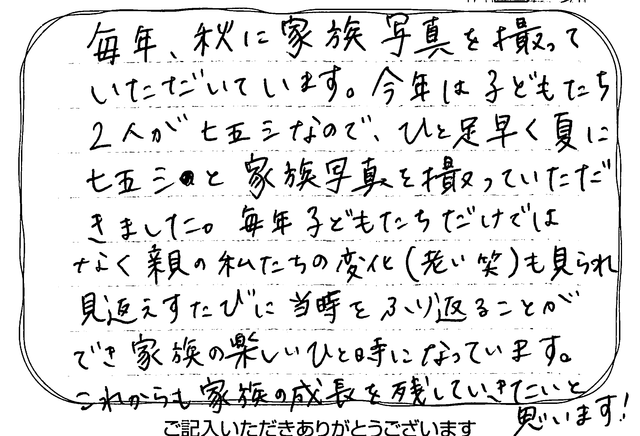 毎年、秋に家族写真を撮って
いただいています。今年は子どもたち
2人が七五三なので、ひと足早く夏に
七五三と家族写真を撮っていただ
きました。毎年子どもたちだけでは
なく親の私たちの変化(老い笑)も見られ
見返えすたびに当時をふり返ることが
でき家族の楽しいひと時になっています。
これからも家族の成長を残していきたいと
思います!
ご記入いただきありがとうございます